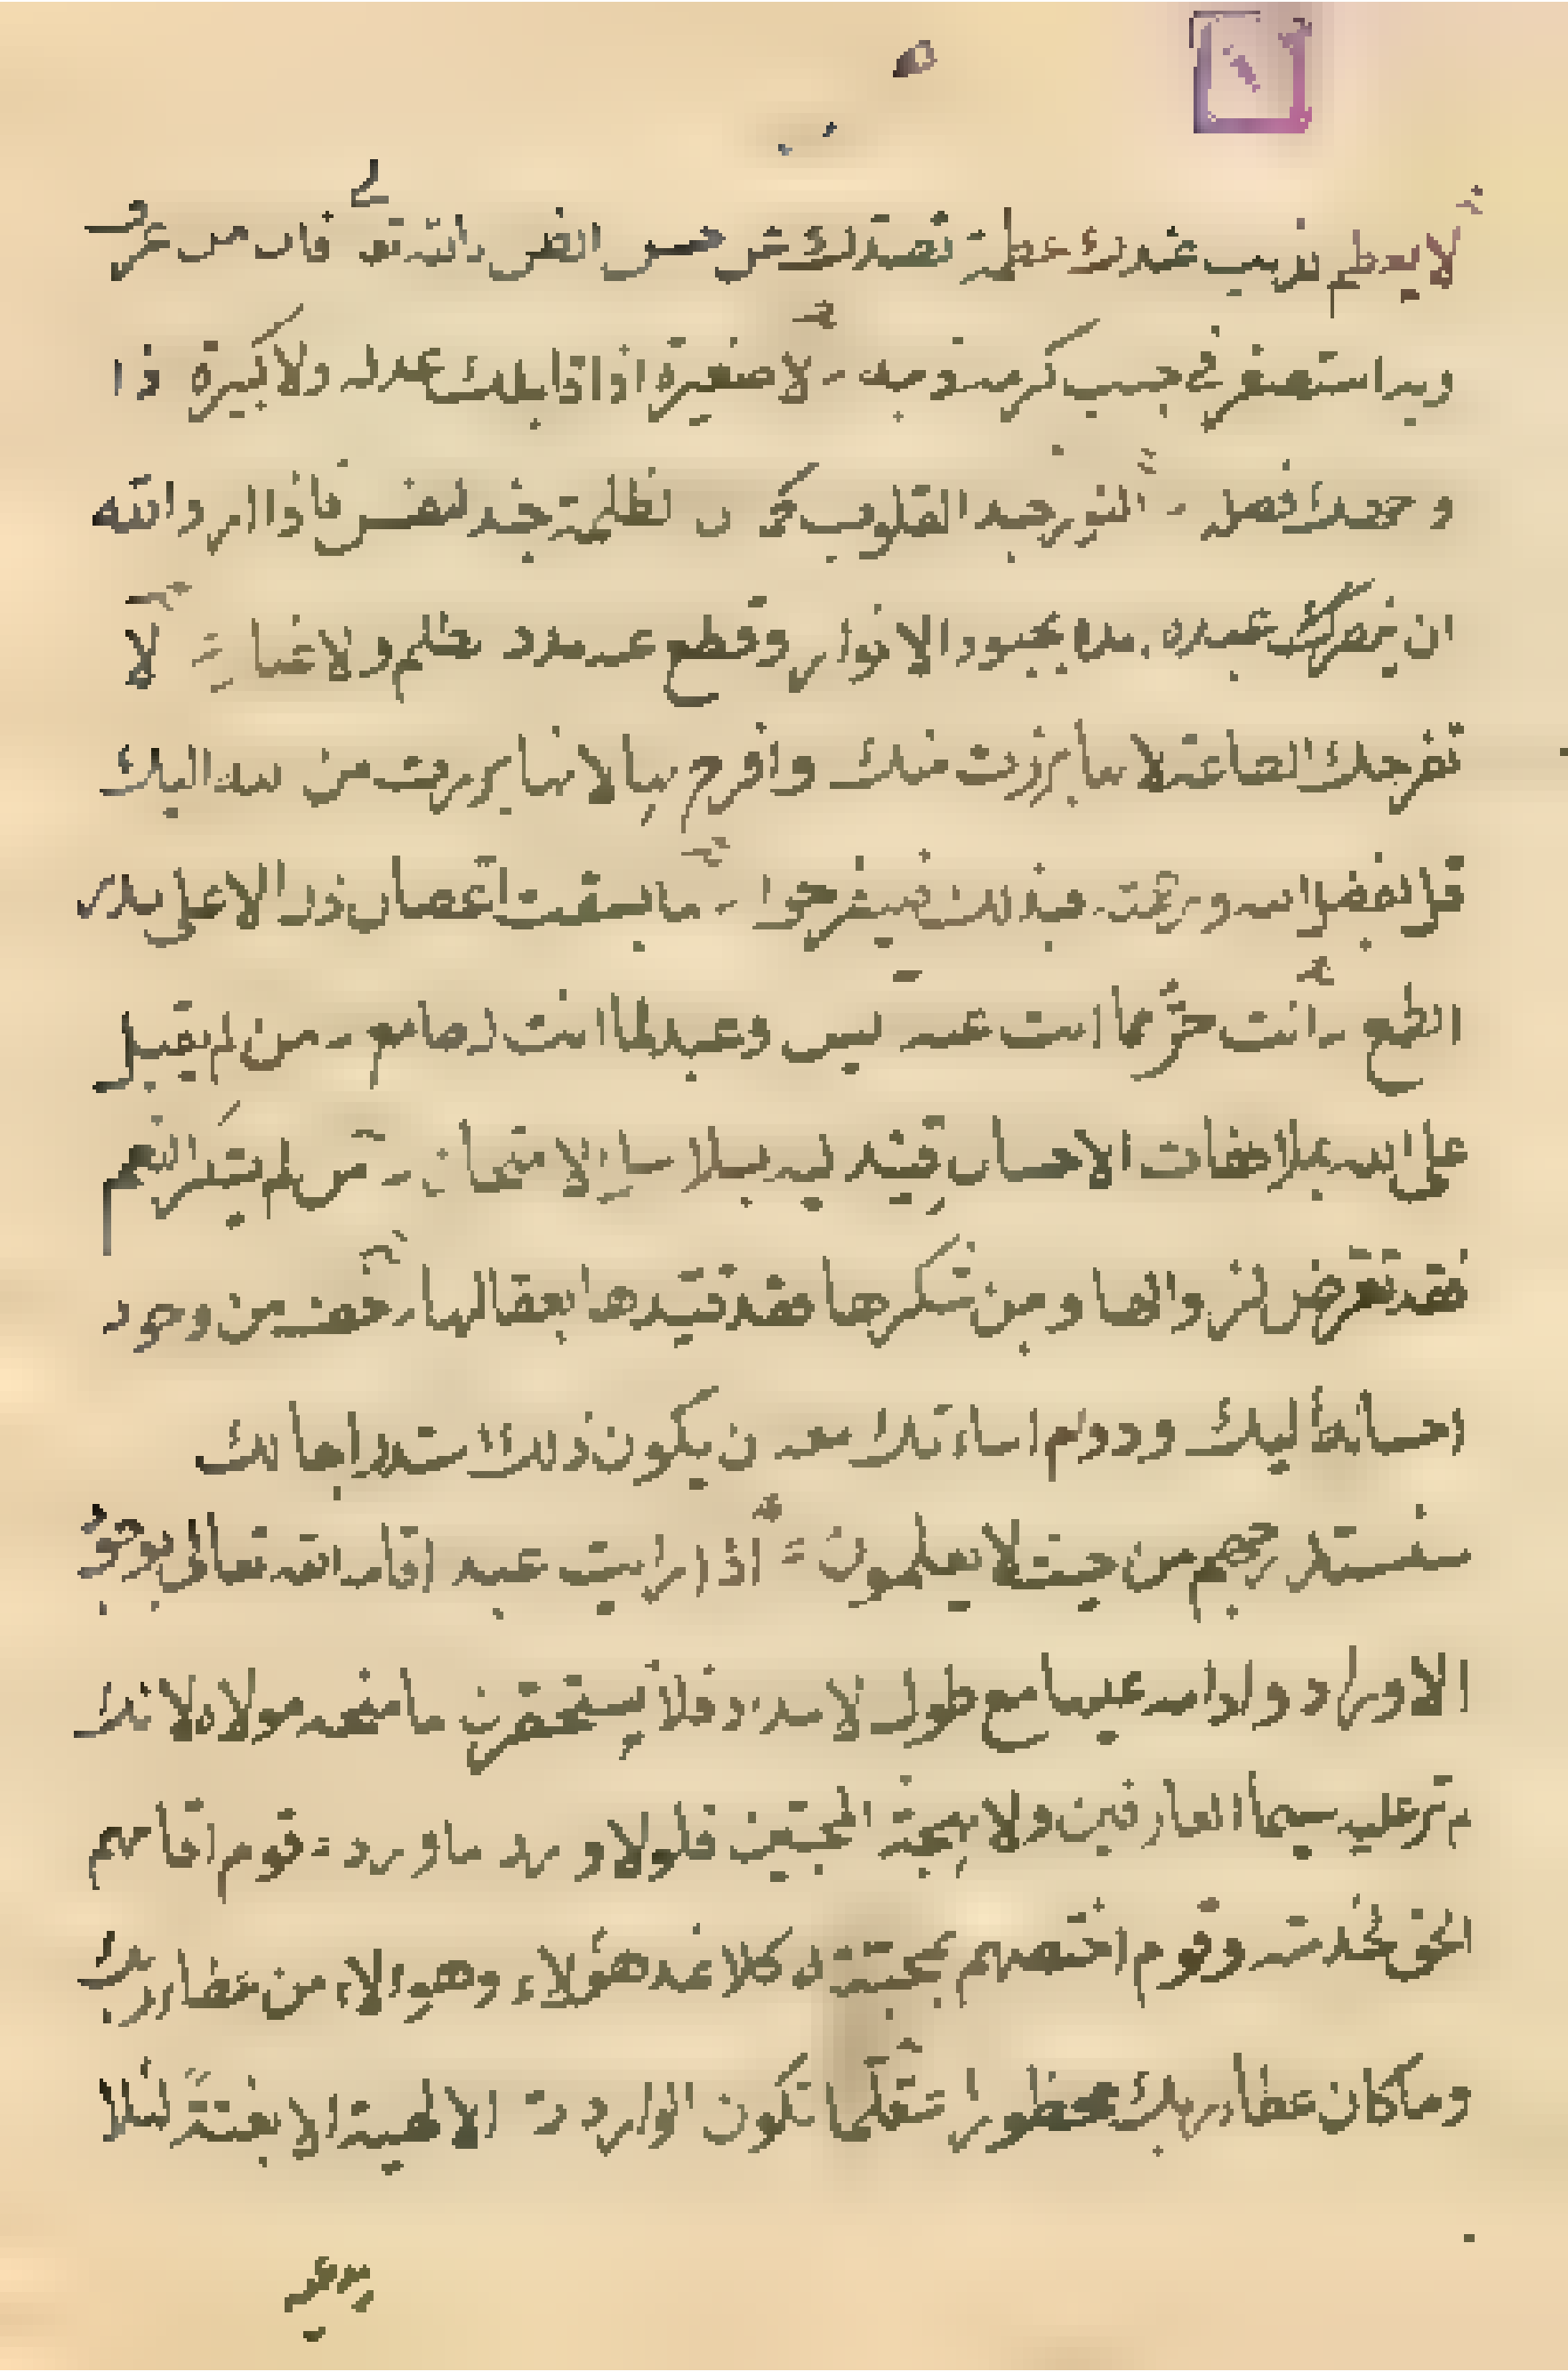 لا يعظم الذنب عندك عظمة تصدك عن حسن الظن بالله تعالى فان من عرف
ربه استصغر في جنب كرمه ذنبه لا صغيرة اذا قابلك عدله ولا كبيرة اذا
واجهك فضله النور جند القلوب كما ان الظلمة جند النفس فاذا اراد الله
ان ينصر عبده امده بجنود الانوار وقطع عنه مدد الظلم والاغيار لا
تفرحك الطاعة لانها برزت منك وافرح بها لانها برزت من الله اليك
قل بفضل الله وبرحمته فبذلك فليفرحوا ما بسقت اغصان ذل الا على بذر
الطمع انت حر مما انت عنه ايس وعبد لما انت له طامع من لم يقبل
على الله بملاطفات الاحسان قيد اليه بسلاسل الامتحان من لم يشكر النعم
فقد تعرض لزوالها ومن شكرها فقد قيدها بعقالها خف من وجود
احسانه اليك ودوام اساءتك معه ان يكون ذلك استدراجا لك
سنستدرجهم من حيث لا يعلمون اذا رايت عبدا اقامه الله تعالى بوجود
الاوراد وادامه عليها مع طول الامداد فلا يستحقرن ما منحه مولاه لانك
لم تر عليه سيما العارفين ولا بهجة المحبين فلولا ورد ما ورد وارد قوم اقامهم
الحق لخدمته وقوم اختصهم بمحبته كلا نمد هؤلاء وهؤلاء من عطاء ربك
وما كان عطاء ربك محظورا قلما تكون الواردات الالهية الا بغتة لئلا